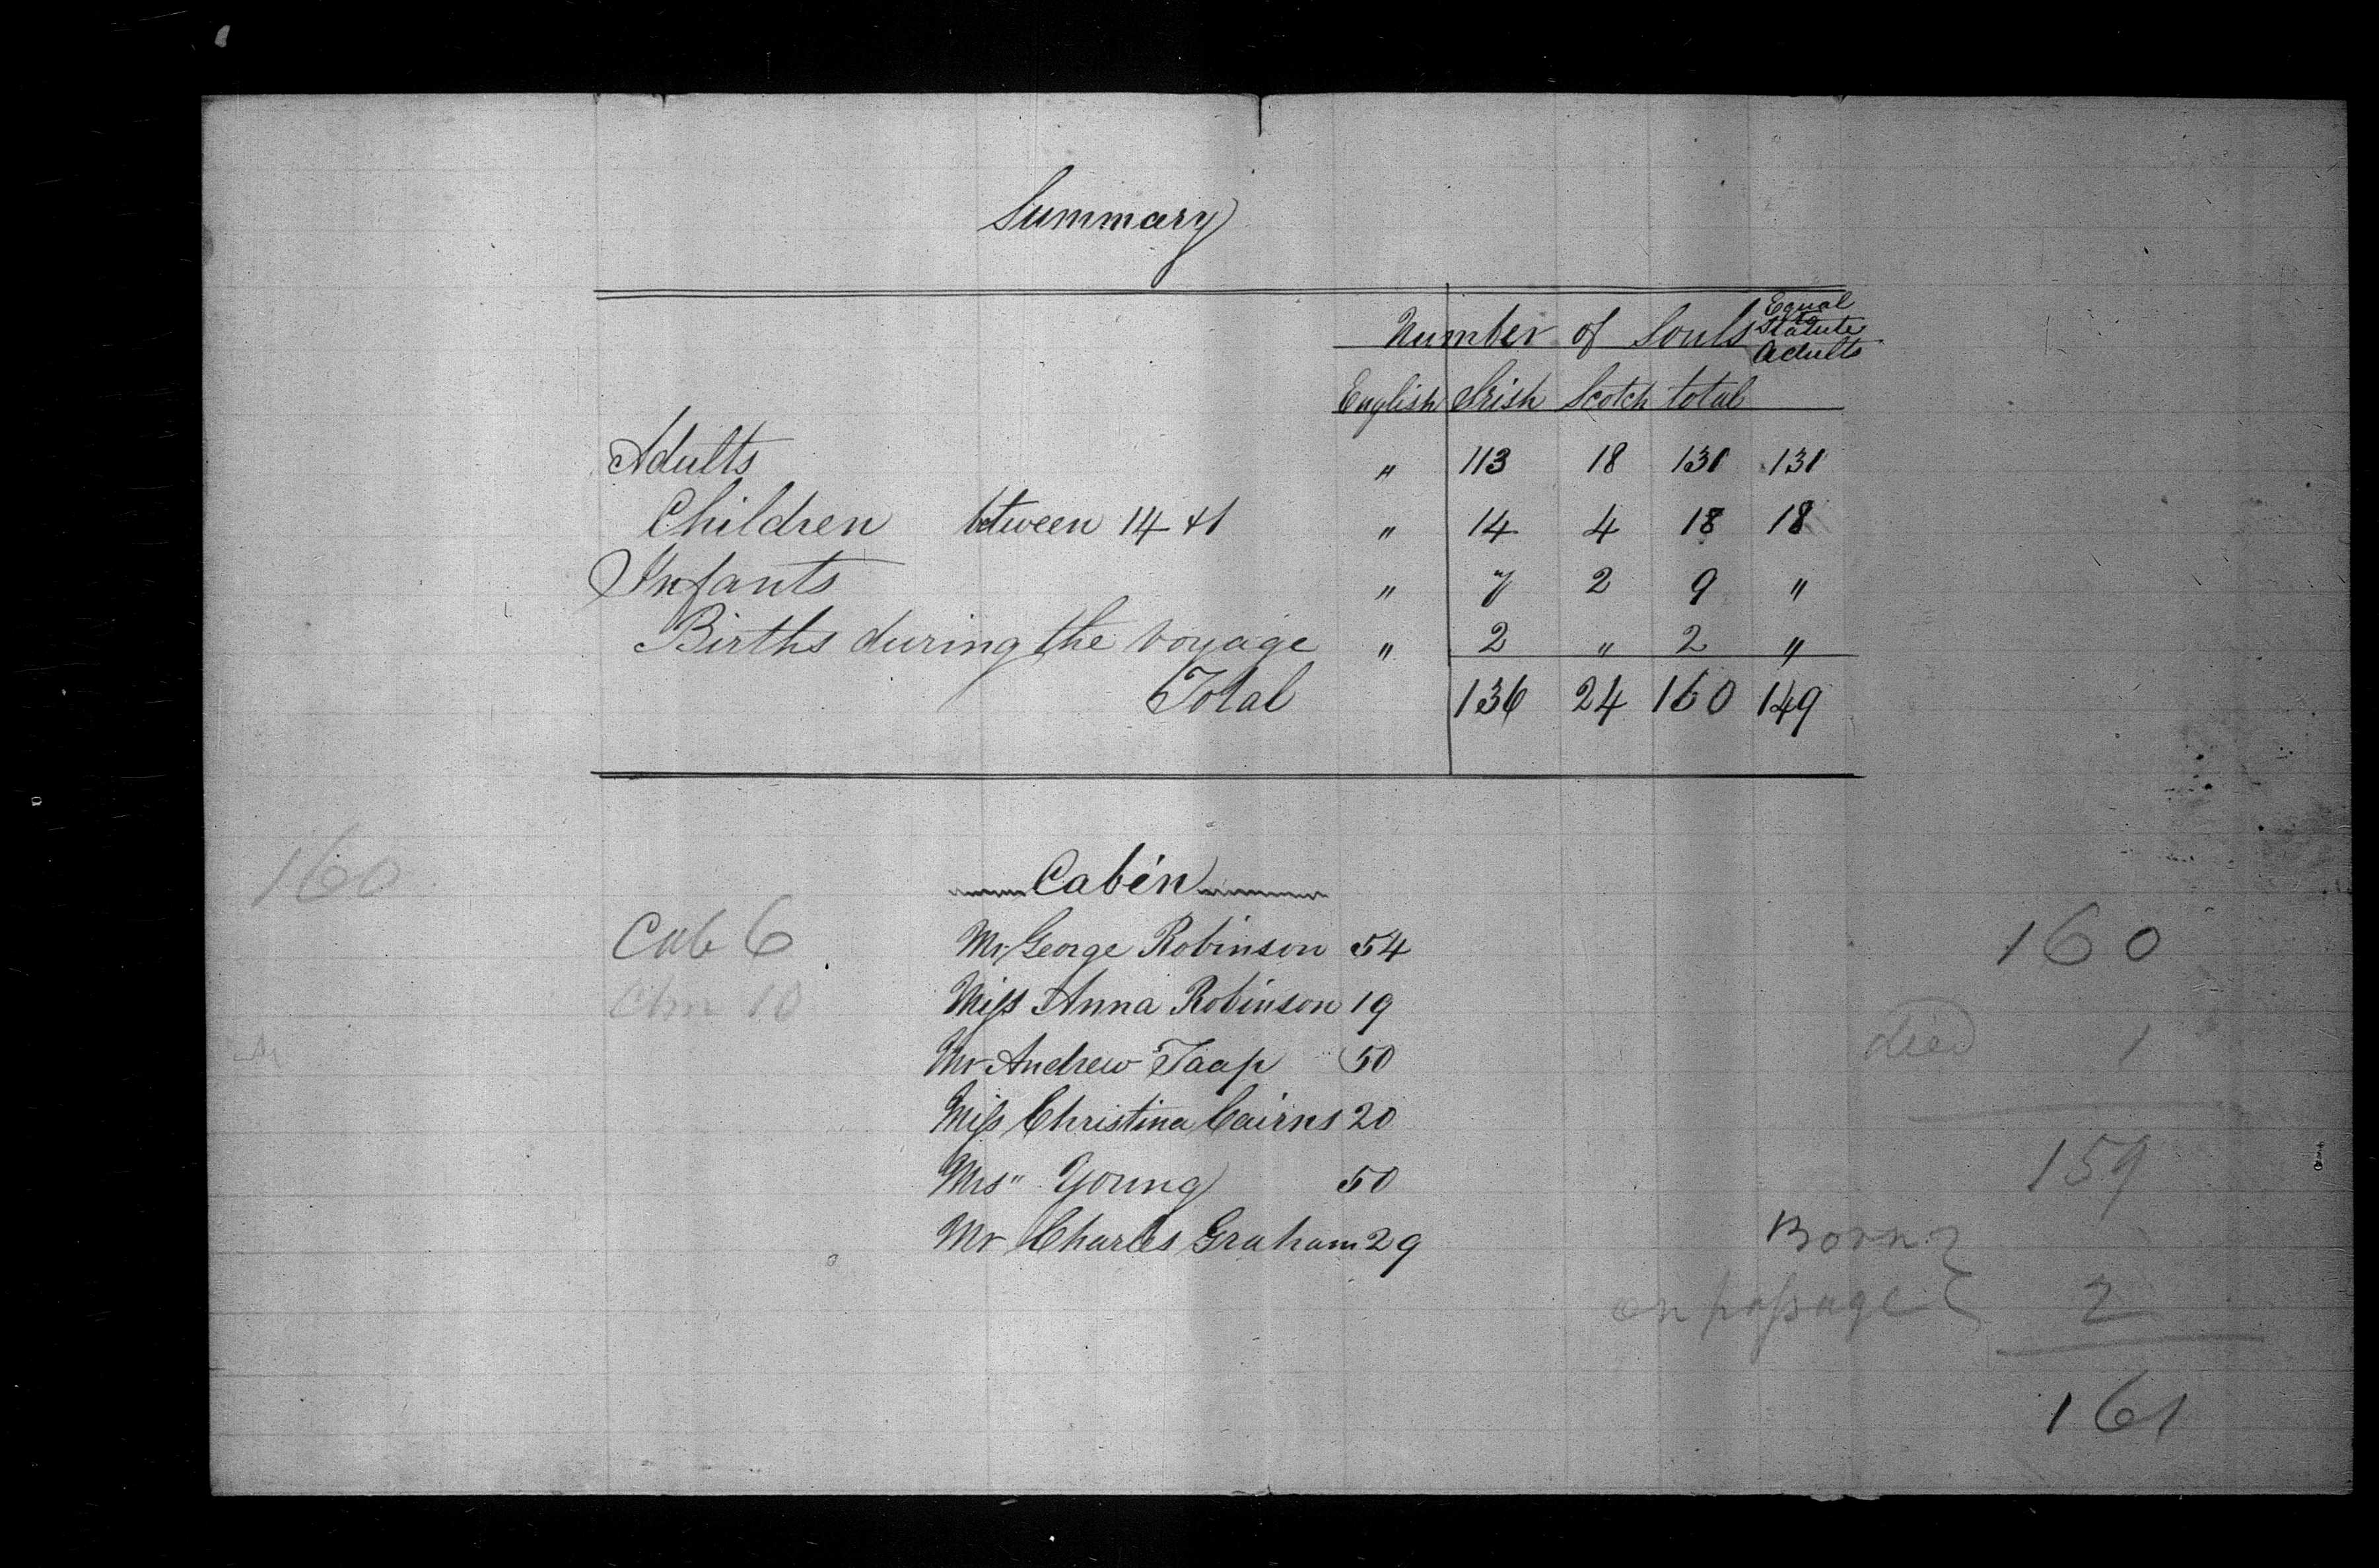 Summary
Number of Souls Equal to Statute Adults
English Irish Scotch total
Adults " 113 18 131 131
Children between 14 & 1 " 14 4 18 18
Infants " 7 2 9 "
Births during the Voyage " 2 " 2 "
Total 136 24 160 149
160
Cabin
Cab 6
Mr George Robinson 54
Miss Anna Robinson 19
Mr Andrew Taap 50
Miss Christina Cairns 20
Mrs " Young 50
Mr Charles Graham 29
160
died 1
159
Born
on passage } 2
161